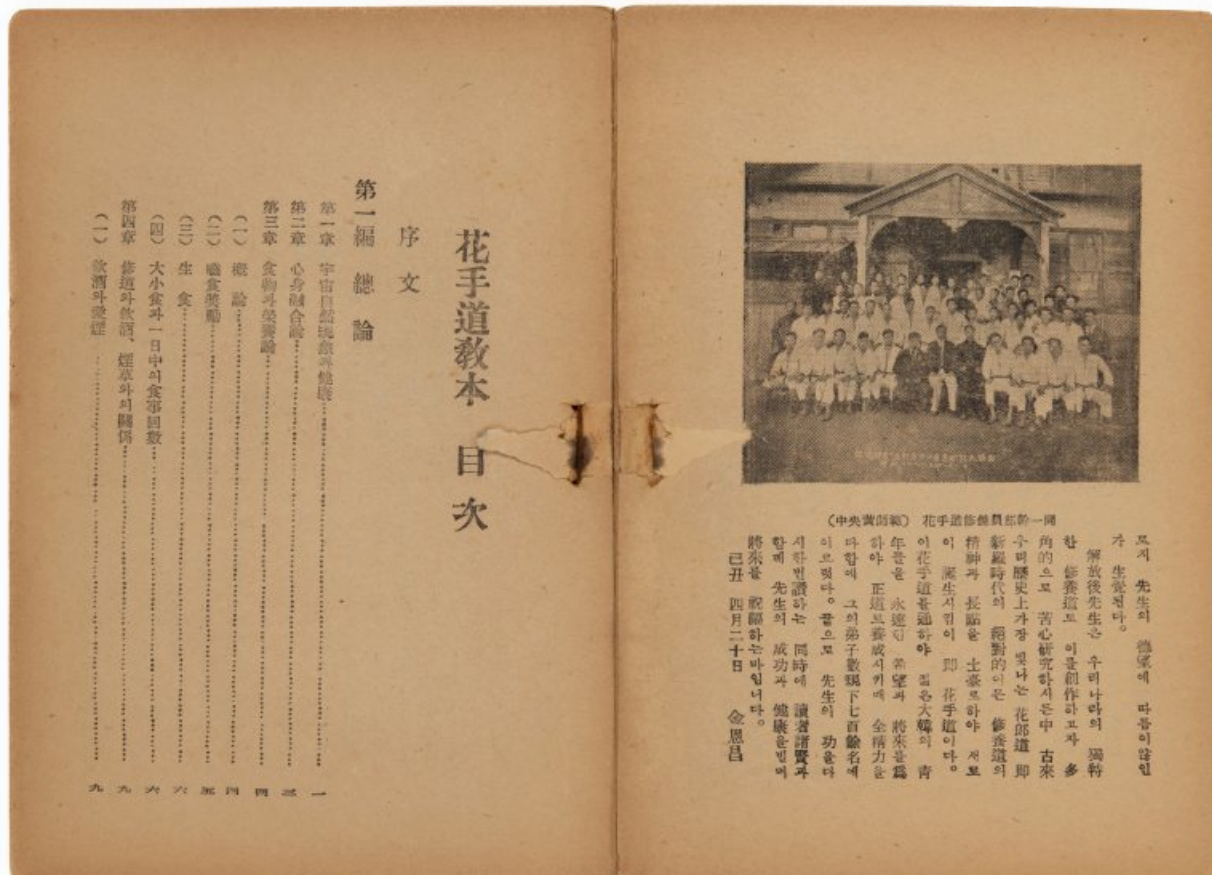 (中央黃師範) 花手道修鍊員部幹一同
로지 先生의 德望에 따름이않인
가 生覺된다。
解放後先生은 우리나라의 獨特
한 修養道로 이를創作하고자 多
角的으로 苦心硏究하시든中 古來
우리歷史上가장 빛나는 花郎道 即
新羅時代의 絕對的이든 修養道의
精神과 長點을 土臺로하야 새로
이 誕生시킴이 即 花手道이다。
이花手道를通하야 젊은大韓의 靑
年들을 永遠한 希望과 將來를爲
하야 正道로養成시키며 全精力을
다함에 그의弟子數現下七百餘名에
이르렀다。 끝으로 先生의 功을다
시한번讚하는 同時에 讀者諸賢과
함께 先生의 成功과 健康을빌며
將來를 祝福하는바입니다。
己丑 四月二十日 金恩昌
花手道敎本 目次
序文
第一編 總論
第一章 宇宙自然現象과健康 一
第二章 心身融合論 三
第三章 食物과榮養論 四
(一) 槪論 四
(二) 食獎勵 五
(三) 生食 六
(四) 大小食과一日中의食事回數 六
第四章 修道와飮酒、煙草와의關係 九
(一) 飮酒와愛煙 九